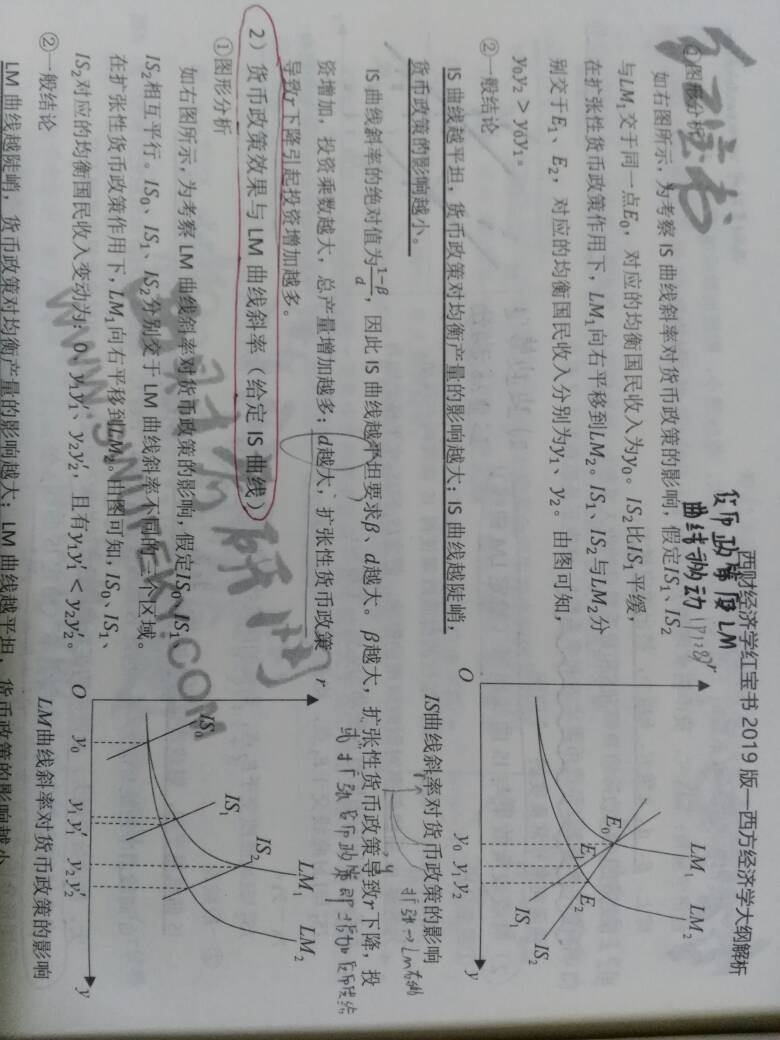 西财经济学红宝书 2019 版—西方经济学大纲解析
货币政策因LM
曲线移动
①图形分析
如右图所示,为考察 IS 曲线斜率对货币政策的影响,假定IS₁、IS₂
与LM₁交于同一点E₀,对应的均衡国民收入为y₀。IS₂比IS₁平缓,
在扩张性货币政策作用下,LM₁向右平移到LM₂。IS₁、IS₂与LM₂分
别交于E₁、E₂,对应的均衡国民收入分别为y₁、y₂。由图可知,
y₀y₂ > y₀y₁。
r
LM₁
LM₂
E₀
E₁
E₂
IS₁
IS₂
O
y₀ y₁ y₂
y
IS曲线斜率对货币政策的影响
②一般结论
IS 曲线越平坦,货币政策对均衡产量的影响越大;IS 曲线越陡峭,
货币政策的影响越小。
扩张→LM右移
IS 曲线斜率的绝对值为(1−β)/d,因此 IS 曲线越平坦要求β、d越大。β越大,扩张性货币政策导致r下降,投
资增加,投资乘数越大,总产量增加越多;d越大,扩张性货币政策
导致r下降引起投资增加越多。
2)货币政策效果与 LM 曲线斜率(给定 IS 曲线)
①图形分析
如右图所示,为考察 LM 曲线斜率对货币政策的影响,假定IS₀、IS₁、
IS₂相互平行。IS₀、IS₁、IS₂分别交于 LM 曲线斜率不同的三个区域。
在扩张性货币政策作用下,LM₁向右平移到LM₂。由图可知,IS₀、IS₁、
IS₂对应的均衡国民收入变动为:0、y₁y₁′、y₂y₂′,且有y₁y₁′ < y₂y₂′。
r
IS₀
IS₁
IS₂
LM₁
LM₂
O
y₀
y₁y₁′
y₂y₂′
y
LM曲线斜率对货币政策的影响
②一般结论
LM 曲线越陡峭,货币政策对均衡产量的影响越大;LM 曲线越平坦,货币政策的影响越小